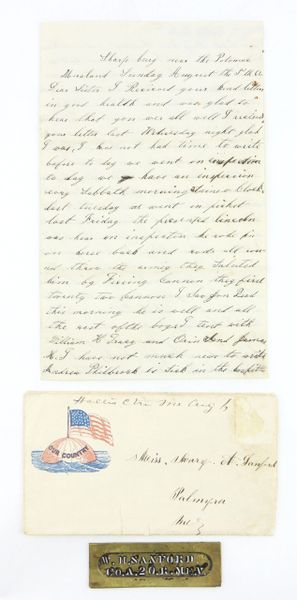 Sharpsburg near the Potomac
Maryland Sunday August the 5th
Dear Sister I Received your kind letter
in good health and was glad to
hear that you wer all well I received
your letter last Wednesday night glad
I was, I have not had time to write
before to day we went on inspection
to day we have an inspection
every Sabbath morning nine o Clock,
last tuesday we went on picket
last Friday the president lincoln
was hear on inspection he rode
on horse back and rode all
the army they Saluted
him by Firing Cannon they fired
twenty two Cannon I Saw
this morning he is well and all
the rest of the boys I tent with
William H and Orin and James
I have not much news to write
Andrew Philbrook is Sick in the hospital
Me Aug 6
OUR COUNTRY
Miss Mary A Sanford
Palmyra
Me
W. H. SANFORD
CO. A. 20. R. ME. V.